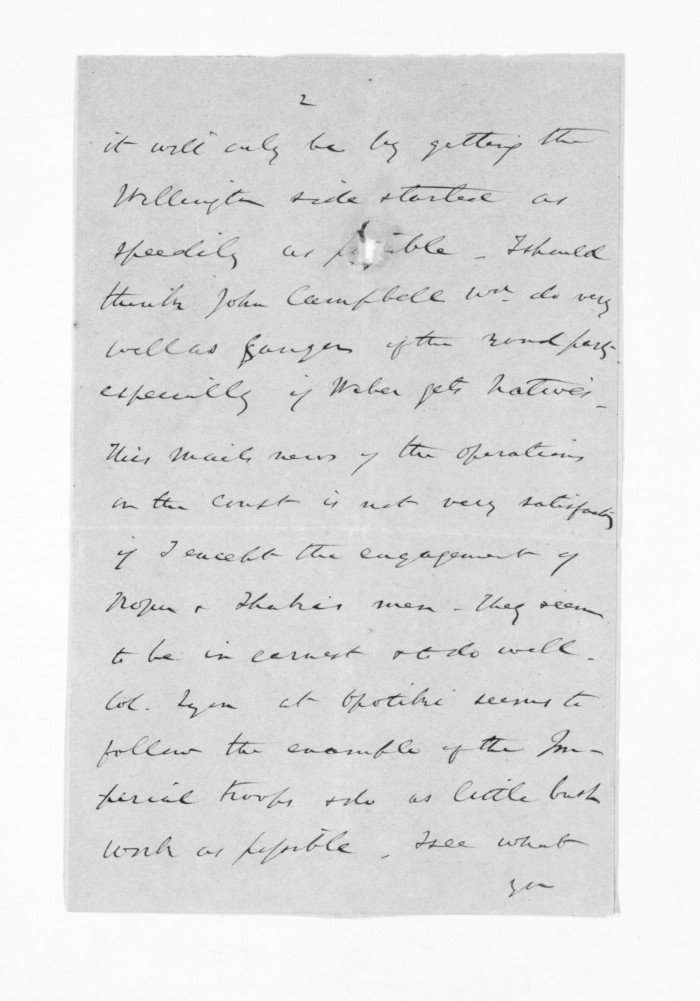 2
it will only be by getting the
Wellington side started as
speedily as possible. I should
think John Campbell wd. do very
well as Ganger of the road party
especially if Weber gets Natives_
This mails news of the operations
on the coast is not very satisfactory
if I except the engagement of
Ropu & men _ they seem
to be in earnest & to do well _
Col. Lyon at Opotiki seems to
follow the example of the Im-
perial troops & do as little bush
work as possible. I see what
you